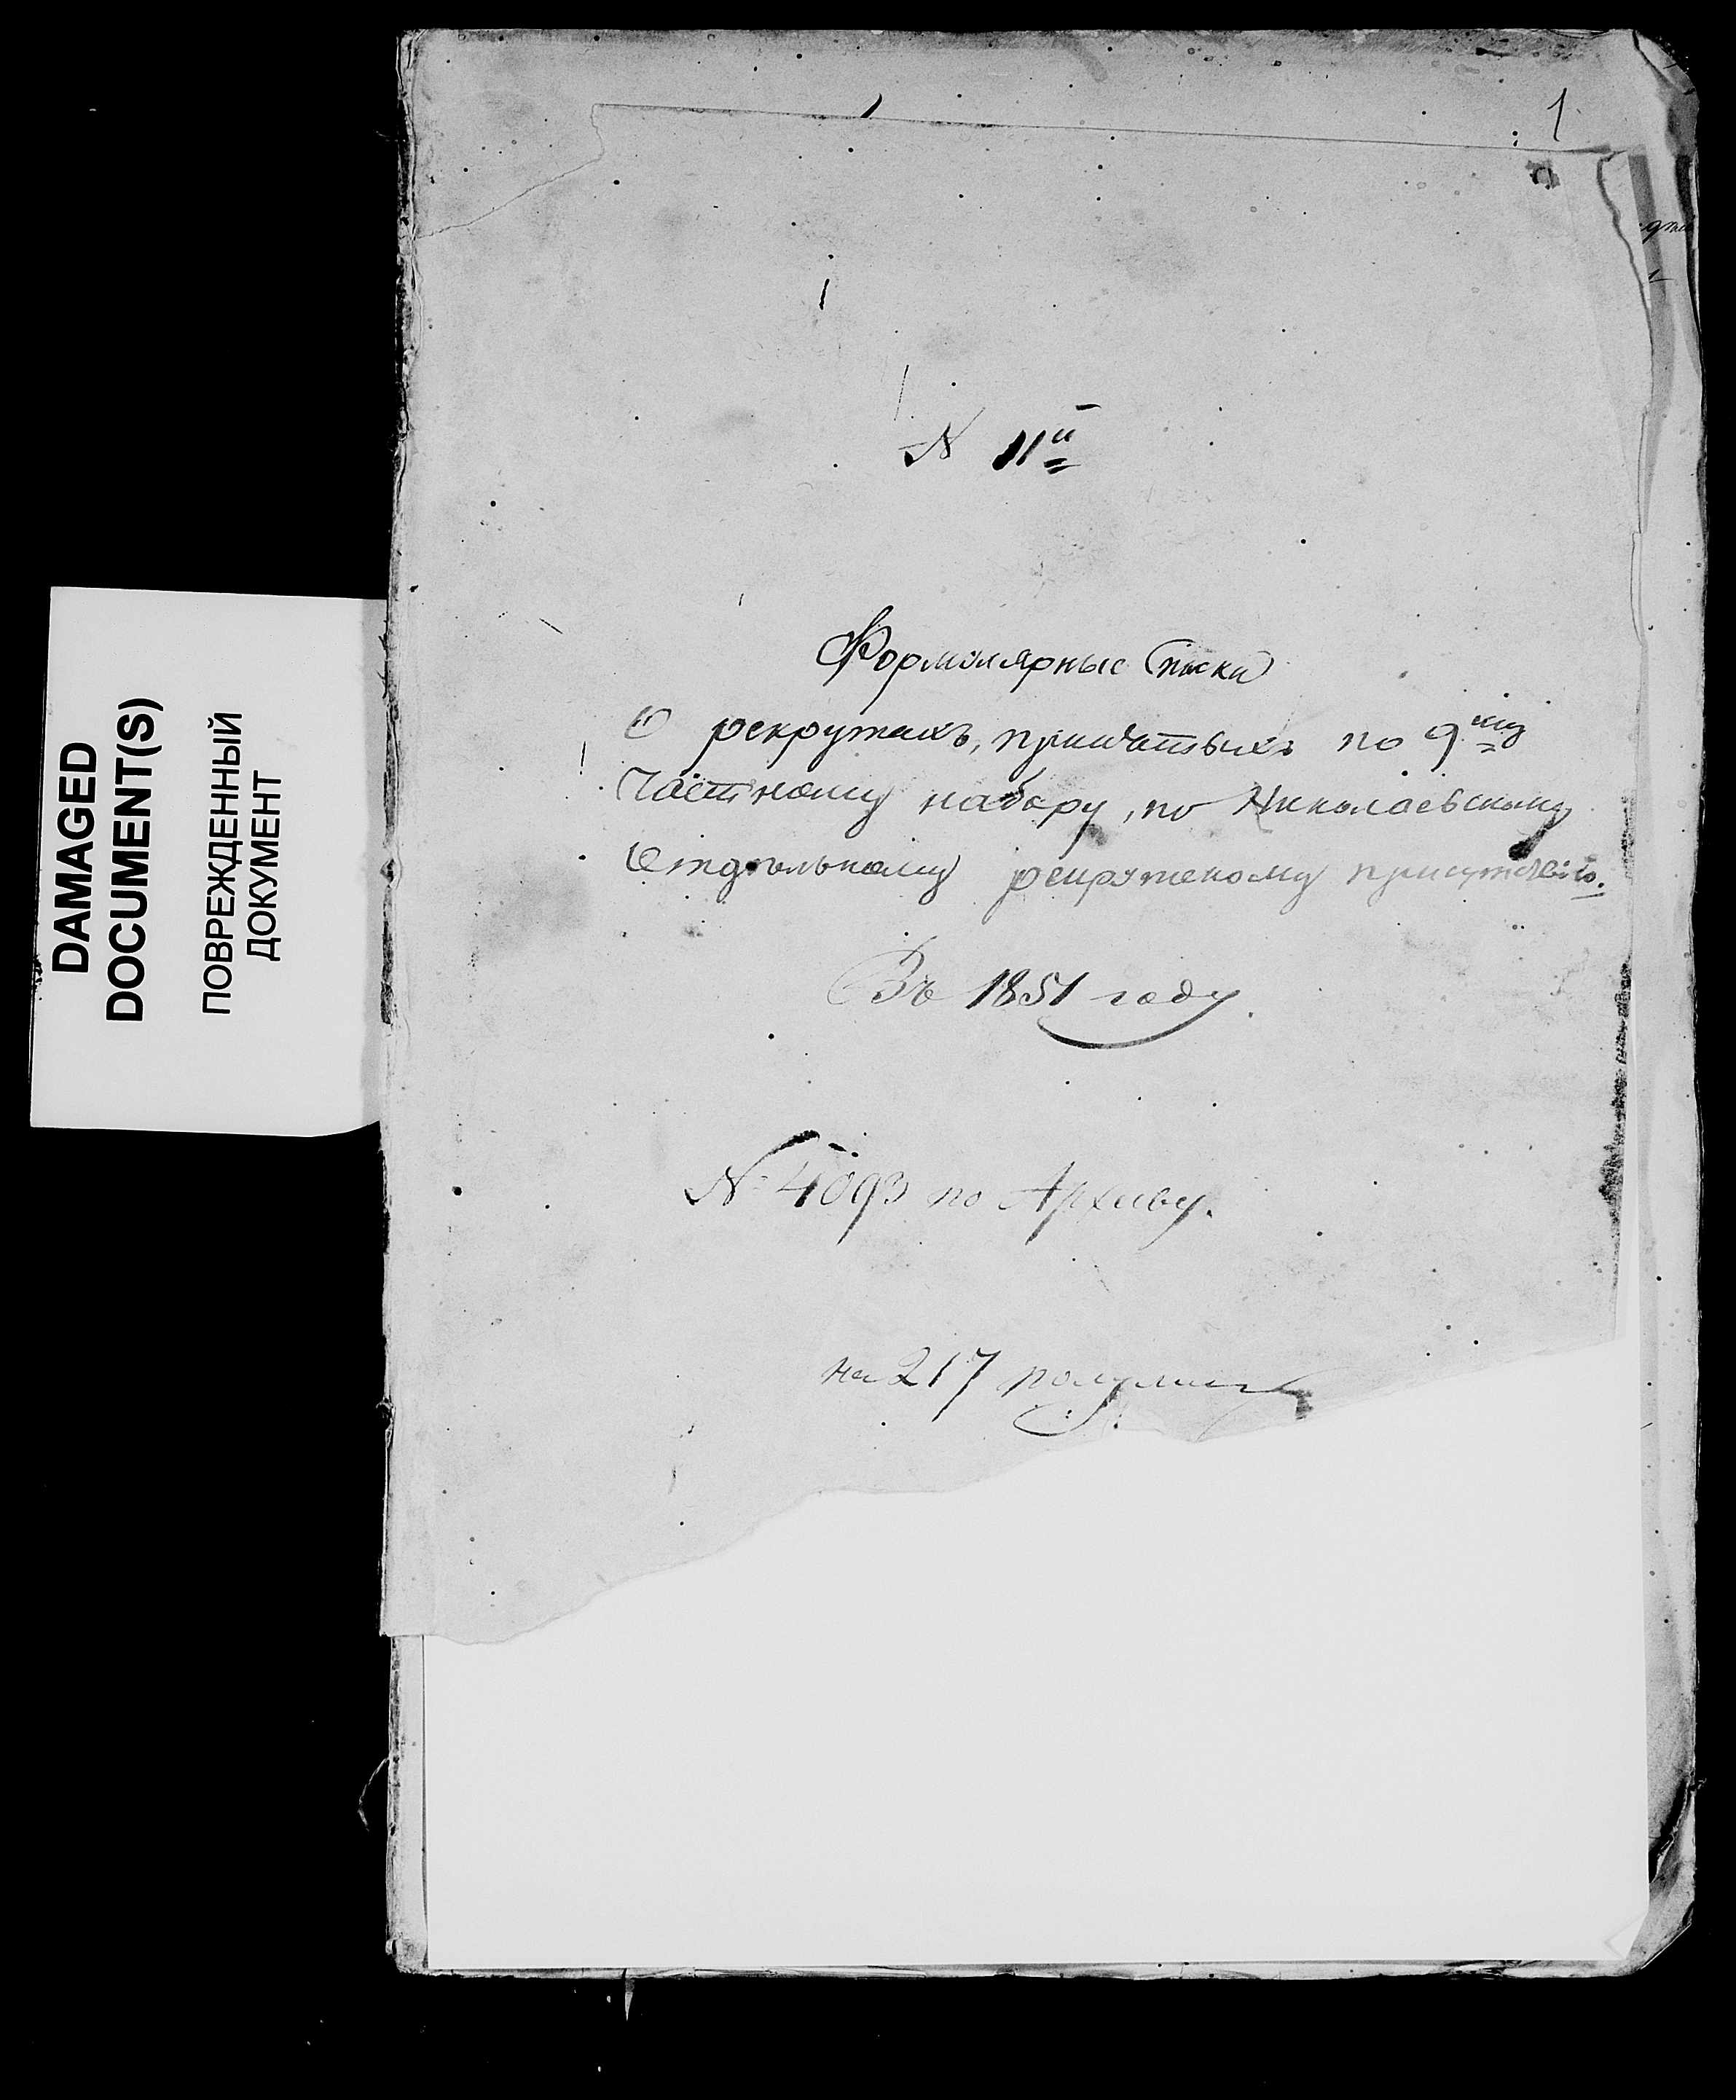 1
№ 11й
Формулярные Списки
О рекрутахъ, принятыхъ по 9му
Частному набору, по Николаевскому
Отдѣльному рекрутскому присутствію.
Въ 1851 году.
№ 4093 по Архиву.
на 217 полулист
DAMAGED
DOCUMENT(S)
ПОВРЕЖДЕННЫЙ
ДОКУМЕНТ